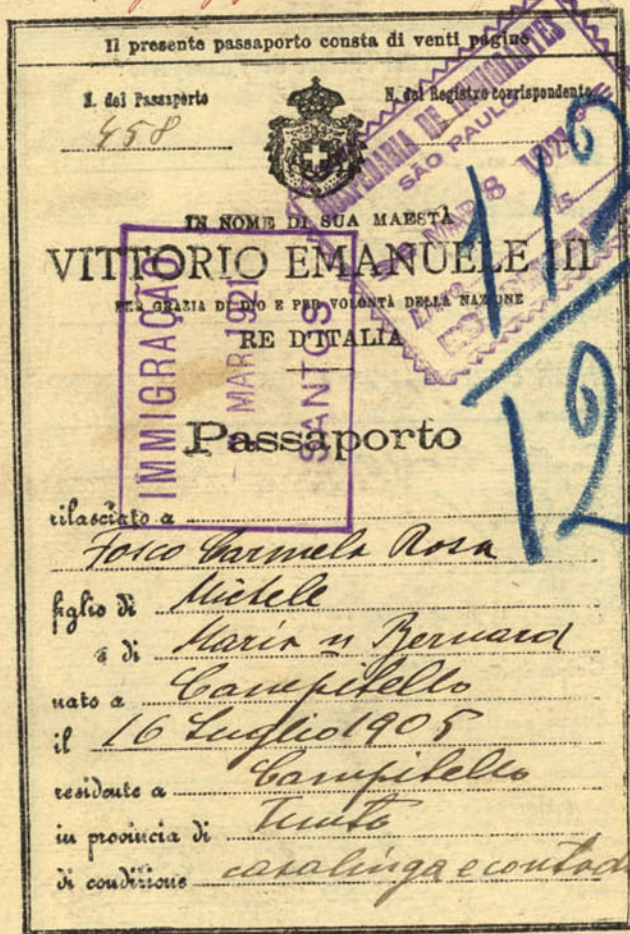 Il presente passaporto consta di venti pagine
N. del Passaporto
N. del Registro corrispondente
458
HOSPEDARIA DE IMMIGRANTES
SÃO PAULO
MAR 8 192
IN NOME DI SUA MAESTÀ
VITTORIO EMANUELE III
PER GRAZIA DI DIO E PER VOLONTÀ DELLA NAZIONE
RE D'ITALIA
IMMIGRAÇÃO
MAR 1921
SANTOS
Passaporto
rilasciato a
Fosco Carmela Rosa
figlio di Michele
e di Maria n Bernard
nato a Campitello
il 16 Luglio 1905
residente a Campitello
in provincia di
di condizione casalinga e contad